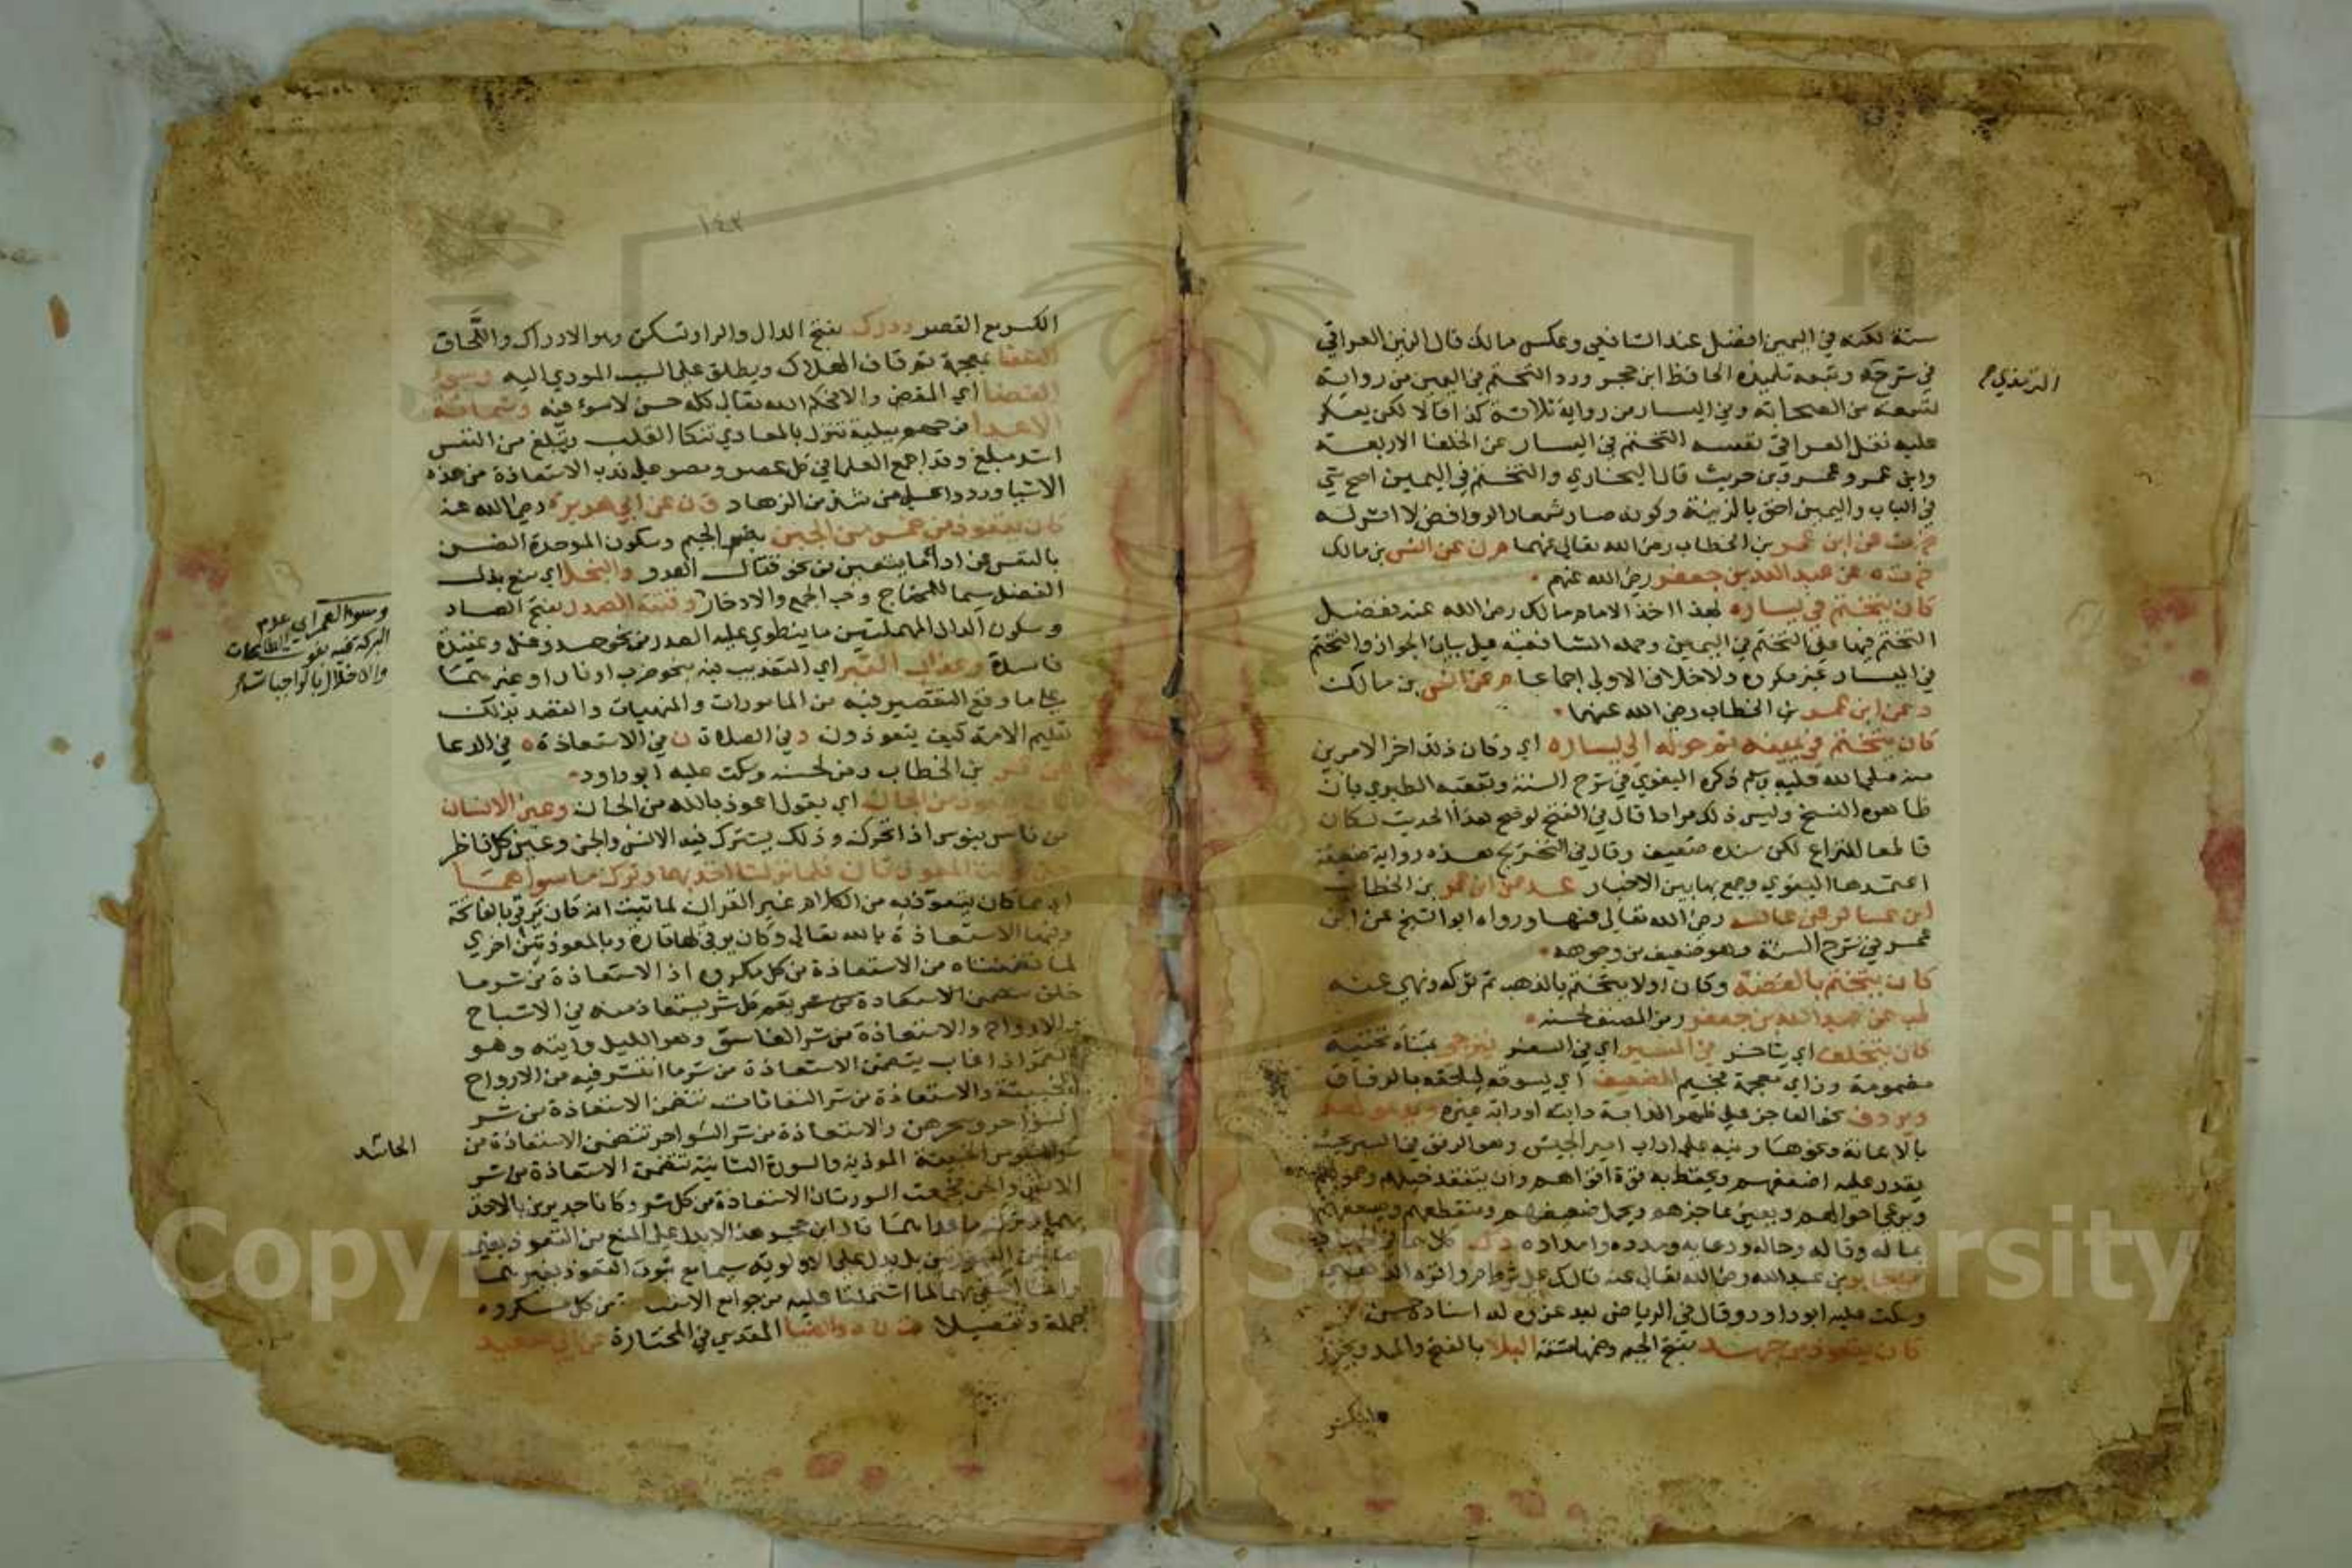 سنة لكنه في اليمين افضل عند الشافعي وعكس مالك قال الزين العراقي
في شرح وتبعه تلميذه الحافظ ابن حجر ورد التختم في اليمين من رواية
الترمذي
تسعة من الصحابة وفي اليسار من رواية ثلاثة كذا قالا لكن يعكر
عليه نقل العراقي نفسه التختم في اليسار عن الخلفا الاربعة
وابن عمر وعمرو بن حريث قال البخاري والتختم في اليمين اصح شي
في الباب واليمين احق بالزينة وكونه صار شعار الروافض لا اثر له
عن ابن عمر بن الخطاب رضي الله تعالى عنهما م ن عن انس بن مالك
عن عبد الله بن جعفر رضي الله عنهم
كان يتختم في يساره بهذا اخذ الامام مالك رضي الله عنه ففضل
التختم فيها على التختم في اليمين وحمله الشافعية على بيان الجواز والتختم
في اليسار غير مكروه ولا خلاف الاولى اجماعا م عن انس بن مالك
د عن ابن عمر بن الخطاب رضي الله عنهما
كان يتختم في يمينه ثم حوله الى يساره اي وكان ذلك اخر الامرين
منه صلى الله عليه وسلم ذكره البغوي في شرح السنة وتعقبه الطبري بان
ظاهره النسخ وليس ذلك مرادا قال في الفتح لو صح هذا الحديث لكان
قاطعا للنزاع لكن سنده ضعيف وقال في التخريج هذه رواية ضعيفة
اعتمدها البغوي وجمع بها بين الاخبار عد عن ابن عمر بن الخطاب
ابن عساكر عن عائشة رضي الله تعالى عنها ورواه ابو الشيخ عن ابن
عمر في شرح السنة وهو ضعيف من وجوهه
كان يتختم بالفضة وكان اولا يتختم بالذهب ثم تركه ونهى عنه
طب عن عبد الله بن جعفر رمز المصنف لحسنه
كان يتخلف اي يتاخر في المسير اي في السفر فيزجي بمثناة تحتية
مضمومة وزاي معجمة فجيم الضعيف اي يسوقه ليلحقه بالرفاق
ويردف نحو العاجز على ظهر الدابة دابته او دابة غيره ويدعو لهم
بالاعانة ونحوها ونبه على اداب امير الجيش وهو الرفق في السير بحيث
يقدر عليه اضعفهم ويحتفظ به قوة اقواهم وان يتفقد خيلهم وحمولهم
ويرعى احوالهم ويعين عاجزهم ويحمل ضعيفهم ومنقطعهم ويسعفهم
بماله وقاله وحاله ودعايه ومدده وامداده
عن جابر بن عبد الله رضي الله تعالى عنه قال ك على شرط م واقره الذهبي
وسكت عليه ابو داود وقال في الرياض بعد عزوه له اسناده حسن
كان يتعوذ من جهد بفتح الجيم وضمها مشقة البلا بالفتح والمد ويجوز
الكسر مع القصر ودرك بفتح الدال والرا وتسكن وهو الادراك واللحاق
الشقا بمعجمة ثم قاف الهلاك ويطلق على السبب المودي اليه وسوء
القضا اي المقضي والا فحكم الله تعالى كله حسن لا سوء فيه وشماتة
الاعدا فرحهم ببلية تنزل بالمعادي تنكا القلب وتبلغ من النفس
اشد مبلغ وقد اجمع العلما في كل عصر ومصر على ندب الاستعاذة من هذه
الاشيا وردوا على من شذ من الزهاد ق ن عن ابي هريرة رضي الله عنه
كان يتعوذ من خمس من الجبن بضم الجيم وسكون الموحدة الضن
بالنفس عن ادا ما يتعين من نحو قتال العدو والبخل اي منع بذل
الفضل سيما للمحتاج وحب الجمع والادخار وفتنة الصدر بفتح الصاد
وسوء العمر اي عدم
البركة فيه بفوت الطاعات
والاخلال بالواجبات
وسكون الدال المهملتين ما ينطوي عليه الصدر من نحو حسد وغل وعقيدة
فاسدة وعذاب القبر اي التعذيب فيه بنحو ضرب او نار او غيرهما
على ما وقع التقصير فيه من المامورات والمنهيات والقصد بذلك
تعليم الامة كيف يتعوذون د في الصلاة ن في الاستعاذة ه في الدعا
عن عمر بن الخطاب رمز لحسنه وسكت عليه ابو داود
كان يتعوذ من الجان اي يقول اعوذ بالله من الجان وعين الانسان
من ناس ينوس اذا تحرك وذلك يشترك فيه الانس والجن وعين كل ناظر
حتى نزلت المعوذتان فلما نزلتا اخذ بهما وترك ما سواهما
اي مما كان يتعوذ به من الكلام غير القران لما ثبت انه كان يرقي بالفاتحة
وفيها الاستعاذة بالله تعالى وكان يرقي بها تارة وبالمعوذتين اخرى
لما تضمنتاه من الاستعاذة من كل مكروه اذ الاستعاذة من شر ما
خلق تتضمن الاستعاذة من شر كل شر يستعاذ منه في الاشباح
والارواح والاستعاذة من شر الغاسق وهو الليل وايته وهو
القمر اذا غاب يتضمن الاستعاذة من شر ما انتشر فيه من الارواح
الخبيثة والاستعاذة من شر النفاثات تتضمن الاستعاذة من شر
السواحر وسحرهن والاستعاذة من شر السواحر تتضمن الاستعاذة من
الحاسد
شر النفوس الخبيثة الموذية والسورة الثانية تتضمن الاستعاذة من شر
الانس والجن فجمعت السورتان الاستعاذة من كل شر وكانا جديرين بالاخذ
بهما وترك ما عداهما قال ابن حجر هذا لا يدل على المنع من التعوذ بغير
هاتين السورتين بل يدل على الاولوية سيما مع ثبوت التعوذ بغيرهما
وانما اكتفى بهما لما اشتملتا عليه من جوامع الاستعاذة من كل مكروه
جملة وتفصيلا ت ن ه والضيا المقدسي في المختارة عن ابي سعيد
١٤٢
Copyright © King Saud University